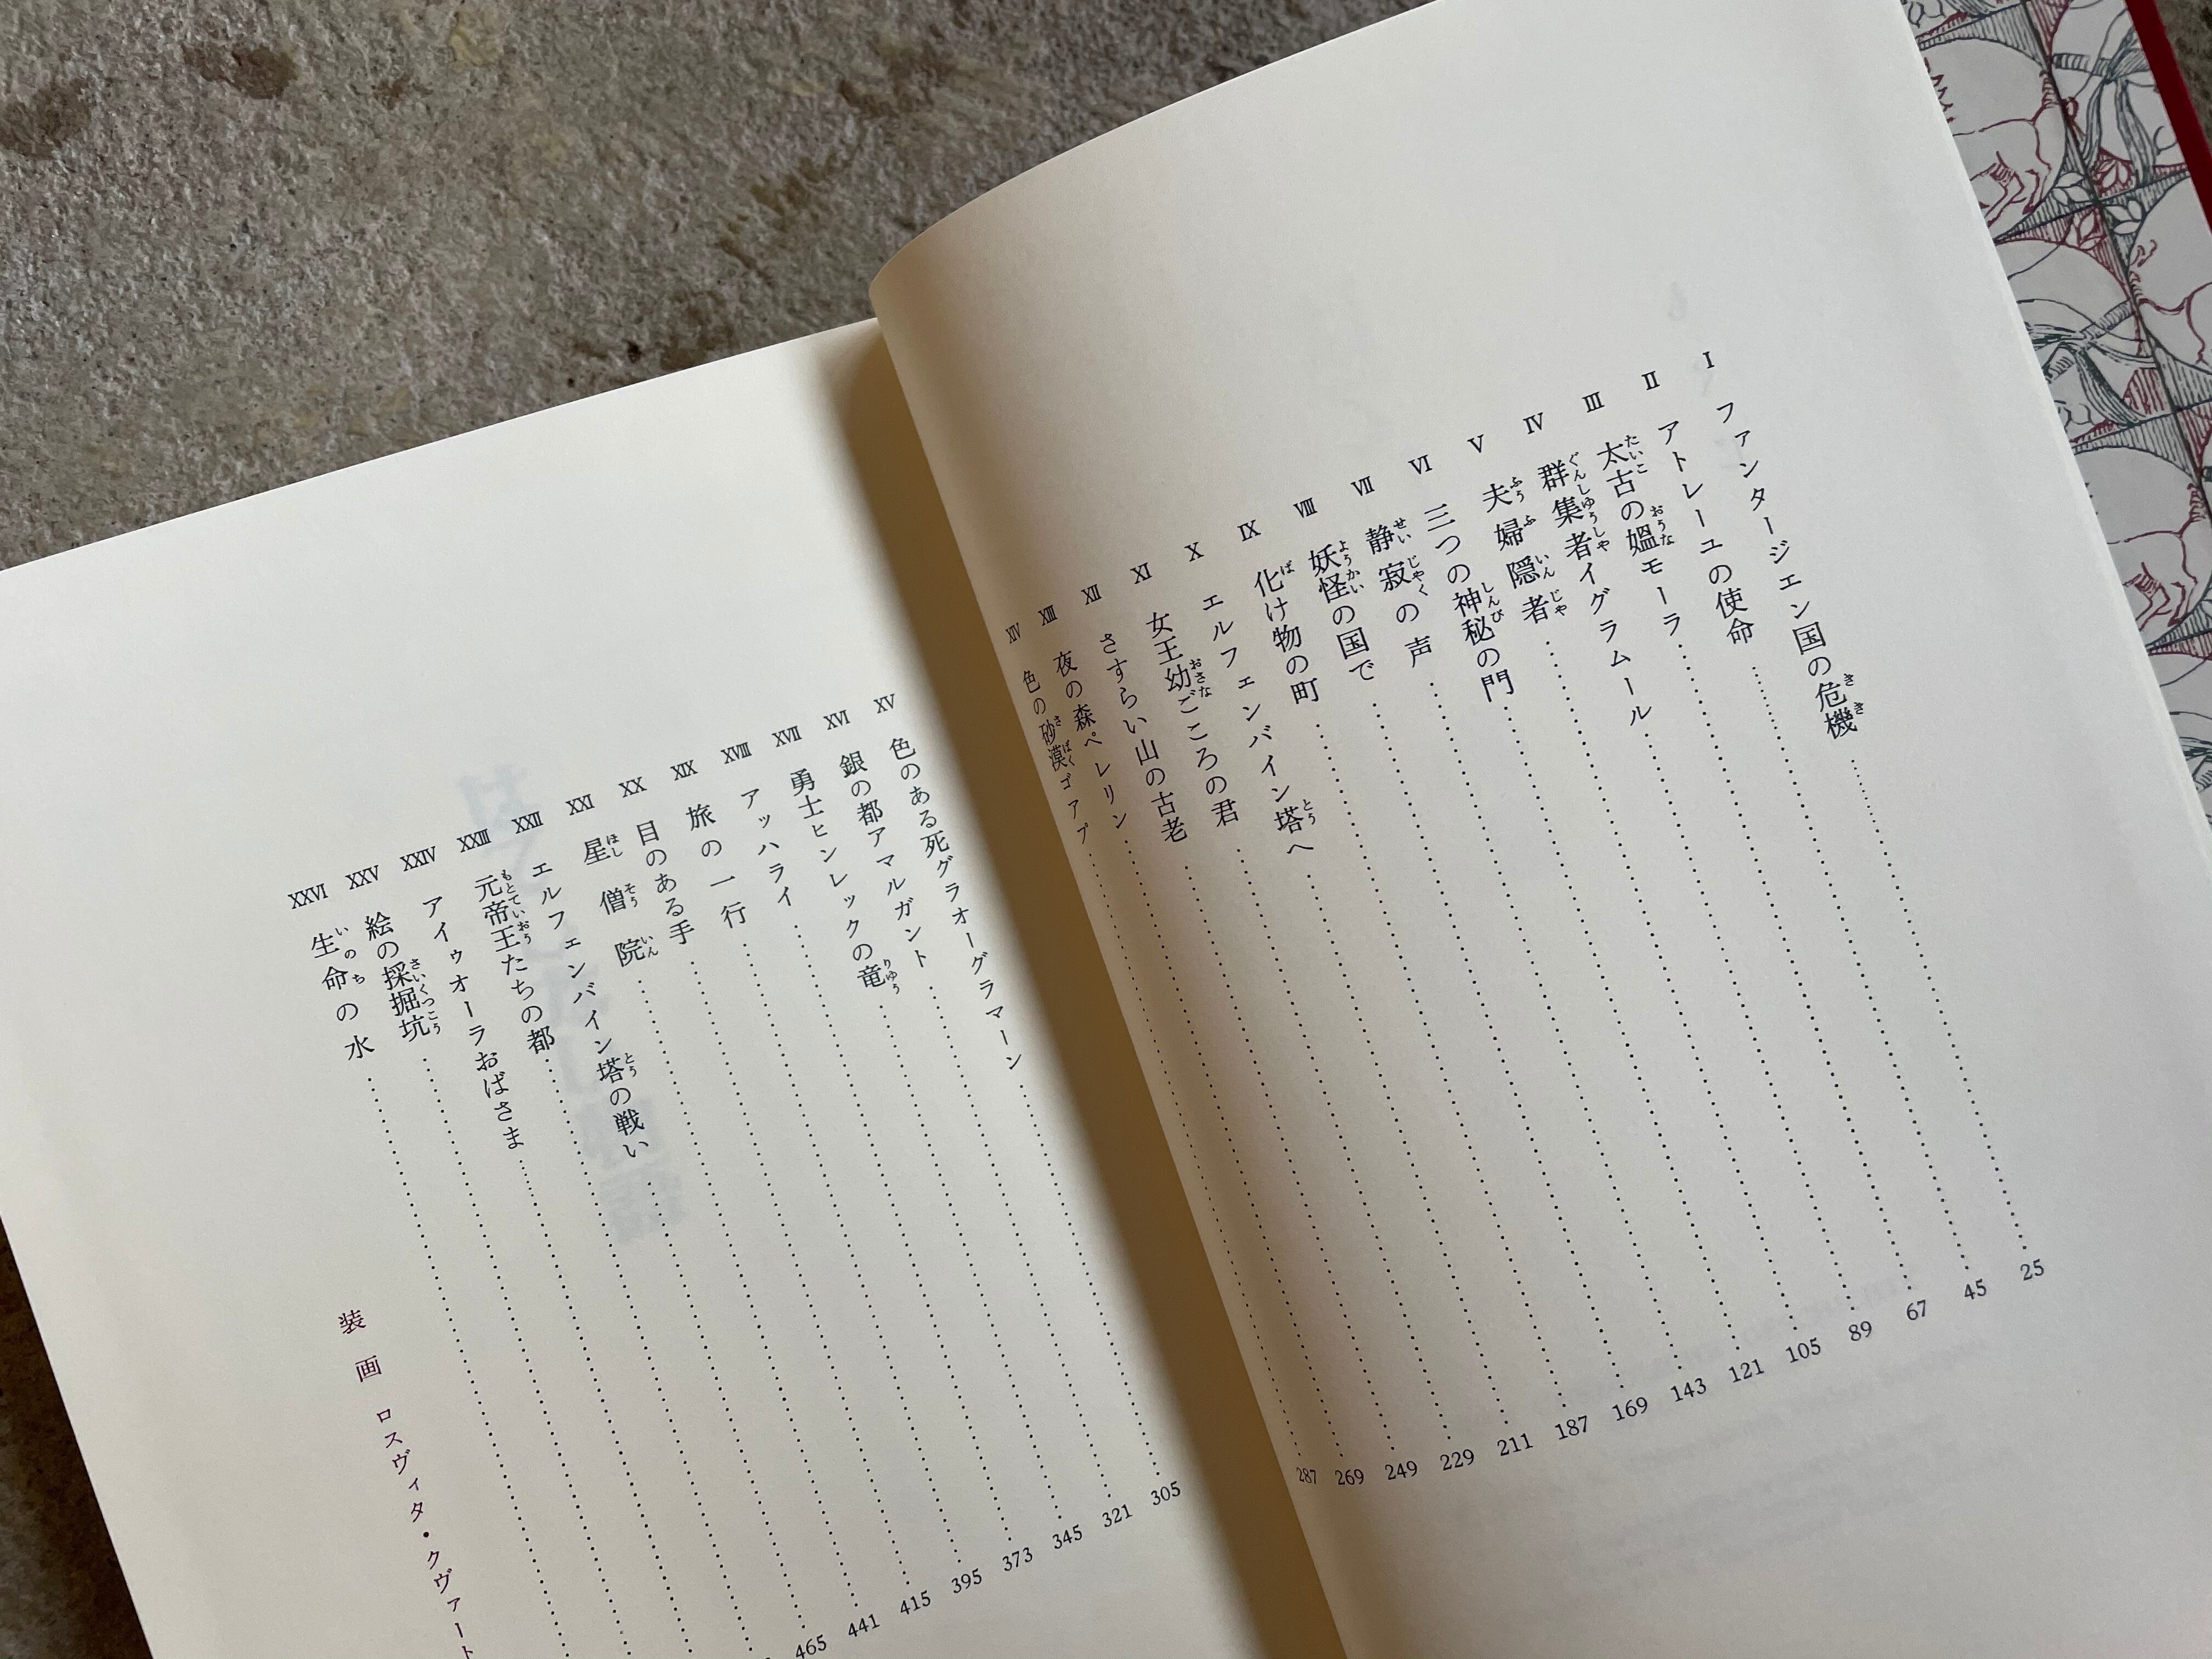 I ファンタージエン国の危機 25
II アトレーユの使命 45
III 太古の媼モーラ 67
IV 群集者イグラムール 89
V 夫婦隠者 105
VI 三つの神秘の門 121
VII 静寂の声 143
VIII 妖怪の国で 169
IX 化け物の町 187
X エルフェンバイン塔へ 211
XI 女王幼ごころの君 229
XII さすらい山の古老 249
XIII 夜の森ペレリン 269
XIV 色の砂漠ゴアプ 287
XV 色のある死グラオーグラマーン 305
XVI 銀の都アマルガント 321
XVII 勇士ヒンレックの竜 345
XVIII アッハライ 373
XIX 旅の一行 395
XX 目のある手 415
XXI 星僧院 441
XXII エルフェンバイン塔の戦い 465
XXIII 元帝王たちの都
XXIV アイゥオーラおばさま
XXV 絵の採掘坑
XXVI 生命の水
装画 ロスヴィタ・クヴァート